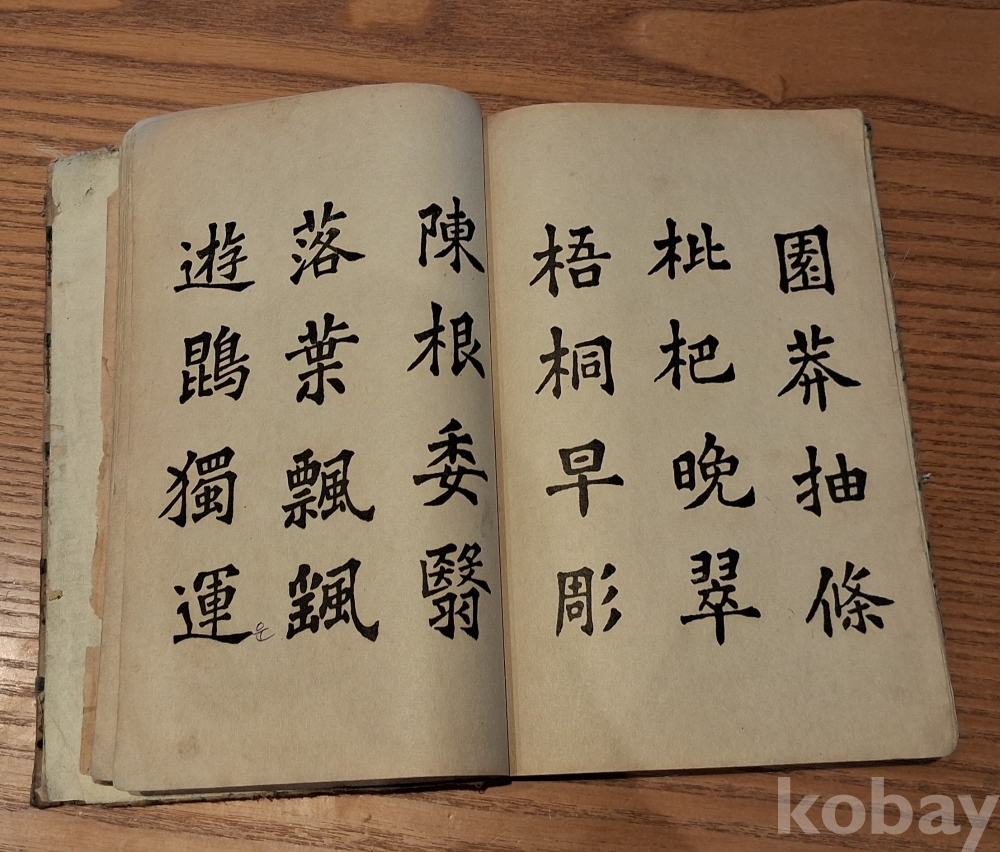 園莽抽條
枇杷晚翠
梧桐早彫
陳根委翳
落葉飄颻
遊鵾獨運
운
kobay